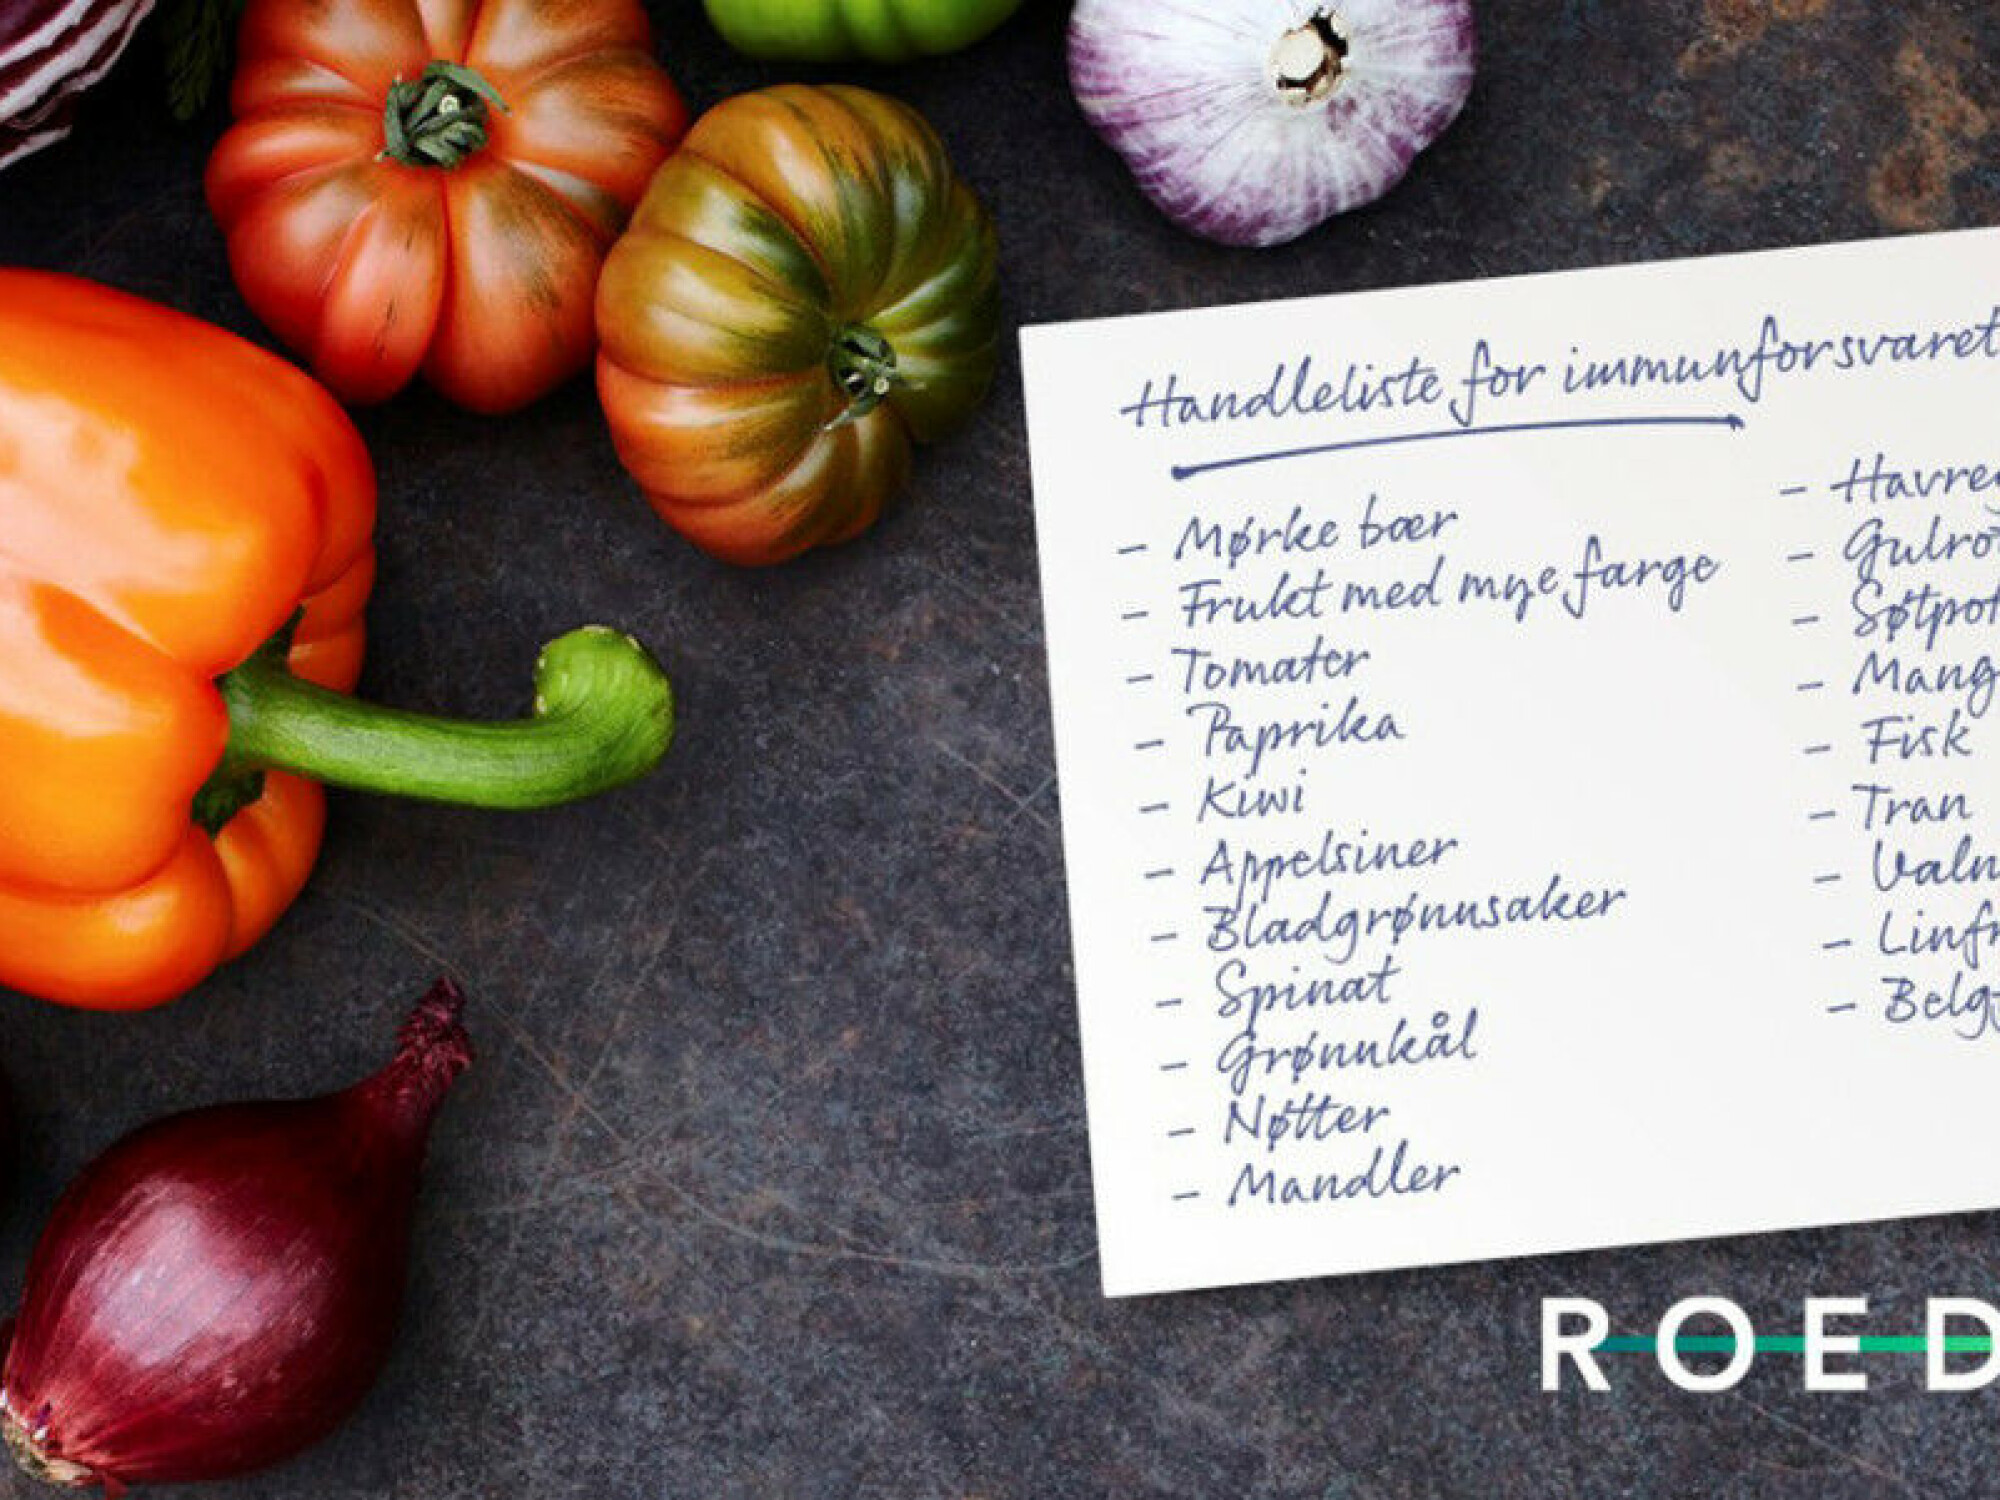 Handleliste for immunforsvaret
- Mørke bær
- Frukt med mye farge
- Tomater
- Paprika
- Kiwi
- Appelsiner
- Bladgrønnsaker
- Spinat
- Grønnkål
- Nøtter
- Mandler
- Havreg
- Gulrot
- Søtpot
- Mang
- Fisk
- Tran
- Valn
- Linfr
- Belgf
ROED